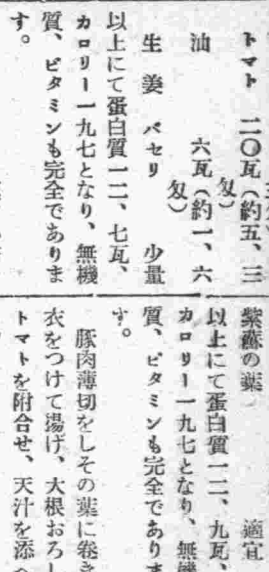 トマト　二〇瓦（約五、三
匁）
油　六瓦（約一、六
匁）
生姜　パセリ　少量
以上にて蛋白質一二、七瓦、
カロリー一九七となり、無機
質、ビタミンも完全でありま
す。
紫蘇の葉　適宜
以上にて蛋白質一二、九瓦、
カロリー一九七となり、無機
質、ビタミンも完全でありま
す。
豚肉薄切をしその葉に巻き
衣をつけて揚げ、大根おろし
トマトを附合せ、天汁を添へ